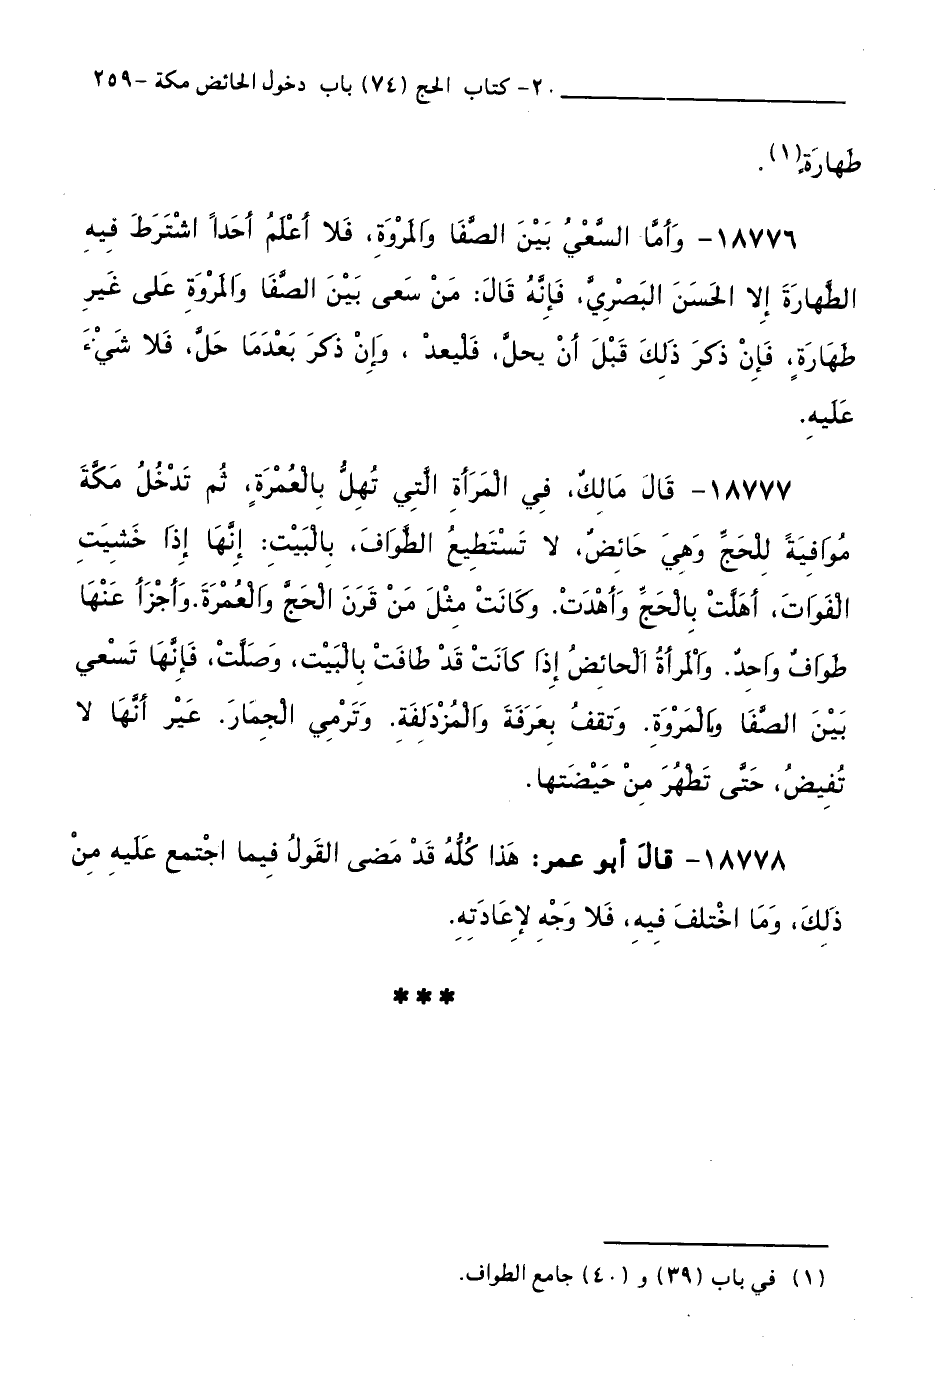 ٢٠- كتاب الحج (٧٤) باب دخول الحائض مكة -٢٥٩
طَهارَةٍ(١).
١٨٧٧٦- وَأَمَّا السَّعْيُ بَيْنَ الصَّفَا وَالمَرْوَةِ، فَلا أَعْلَمُ أَحَداً اشْتَرَطَ فِيهِ
الطَّهارَةَ إِلا الحَسَنَ البَصْرِيَّ، فَإِنَّهُ قَالَ: مَنْ سَعى بَيْنَ الصَّفَا وَالمَرْوَةِ عَلى غَيرِ
طهَارَةٍ، فَإِنْ ذكرَ ذَلِكَ قَبْلَ أَنْ يحلَّ، فَليعدْ ، وَإِنْ ذكرَ بَعْدَمَا حَلَّ، فَلا شَيْءَ
عَلَيهِ.
١٨٧٧٧- قَالَ مَالِكٌ، فِي الْمَرَأَةِ الَّتِي تُهِلُّ بِالْعُمْرَةِ، ثُم تَدْخُلُ مَكَّةَ
مُوَافِيَةً لِلْحَجِّ وَهِيَ حَائِضٌ، لا تَسْتَطِيعُ الطَّوَافَ، بِالْبَيْتِ: إِنَّهَا إِذَا خَشِيَتِ
الْفَوَاتَ، أَهَلَّتْ بِالْحَجِّ وَأَهْدَتْ. وَكَانَتْ مِثْلَ مَنْ قَرَنَ الْحَجَّ وَالْعُمْرَةَ.وَأَجْزَأَ عَنْهَا
طوَافٌ وَاحِدٌ. وَالْمرأَةُ الْحائضُ إِذَا كانَتْ قَدْ طافَتْ بِالْبَيْتِ، وَصَلَّتْ، فَإِنَّهَا تَسْعي
بَيْنَ الصَّفَا وَالْمَرْوَةِ. وَتَقفُ بِعَرَفَةَ وَالْمُزْدَلِفَةِ. وَتَرْمِي الْجِمَارَ. غَيْرَ أَنَّهَا لا
تُفِيضُ، حَتَّى تَطْهُرَ مِنْ حَيْضَتِها.
١٨٧٧٨- قالَ أبو عمر: هَذا كُلُّهُ قَدْ مَضى القَولُ فِيما اجْتمع عَلَيهِ مِنْ
ذَلِكَ، وَمَا اخْتلفَ فِيهِ، فَلا وَجْهِ لِإعَادَتِهِ.
***
(١) في باب (٣٩) و (٤٠) جامع الطواف.